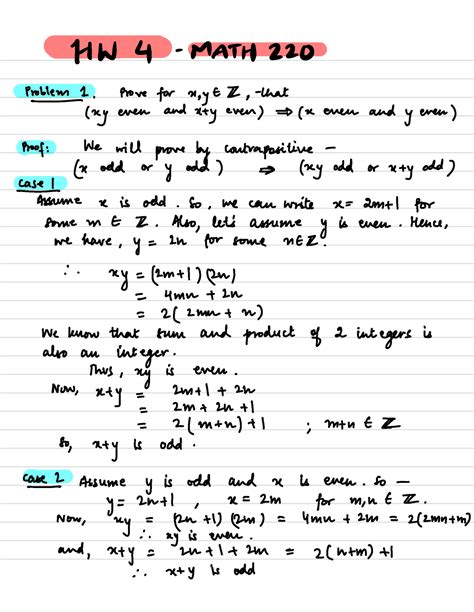 HW 4 - MATH 220
Problem 1. Prove for x,y ∈ ℤ, that
(xy even and x+y even) ⇒ (x even and y even)
Proof: We will prove by contrapositive –
(x odd or y odd) ⇒ (xy odd or x+y odd)
Case 1
Assume x is odd. So, we can write x = 2m+1 for
some m ∈ ℤ. Also, let's assume y is even. Hence,
we have, y = 2n for some n∈ℤ.
∴ xy = (2m+1)(2n)
= 4mn + 2n
= 2(2mn + n)
We know that sum and product of 2 integers is
also an integer.
Thus, xy is even.
Now, x+y = 2m+1 + 2n
= 2m + 2n +1
= 2(m+n)+1 ; m+n ∈ ℤ
So, x+y is odd.
Case 2 Assume y is odd and x is even. So –
y = 2n+1 , x = 2m for m,n ∈ ℤ.
Now, xy = (2n+1)(2m) = 4mn + 2m = 2(2mn+m)
∴ xy is even.
and, x+y = 2n+1+2m = 2(n+m)+1
∴ x+y is odd